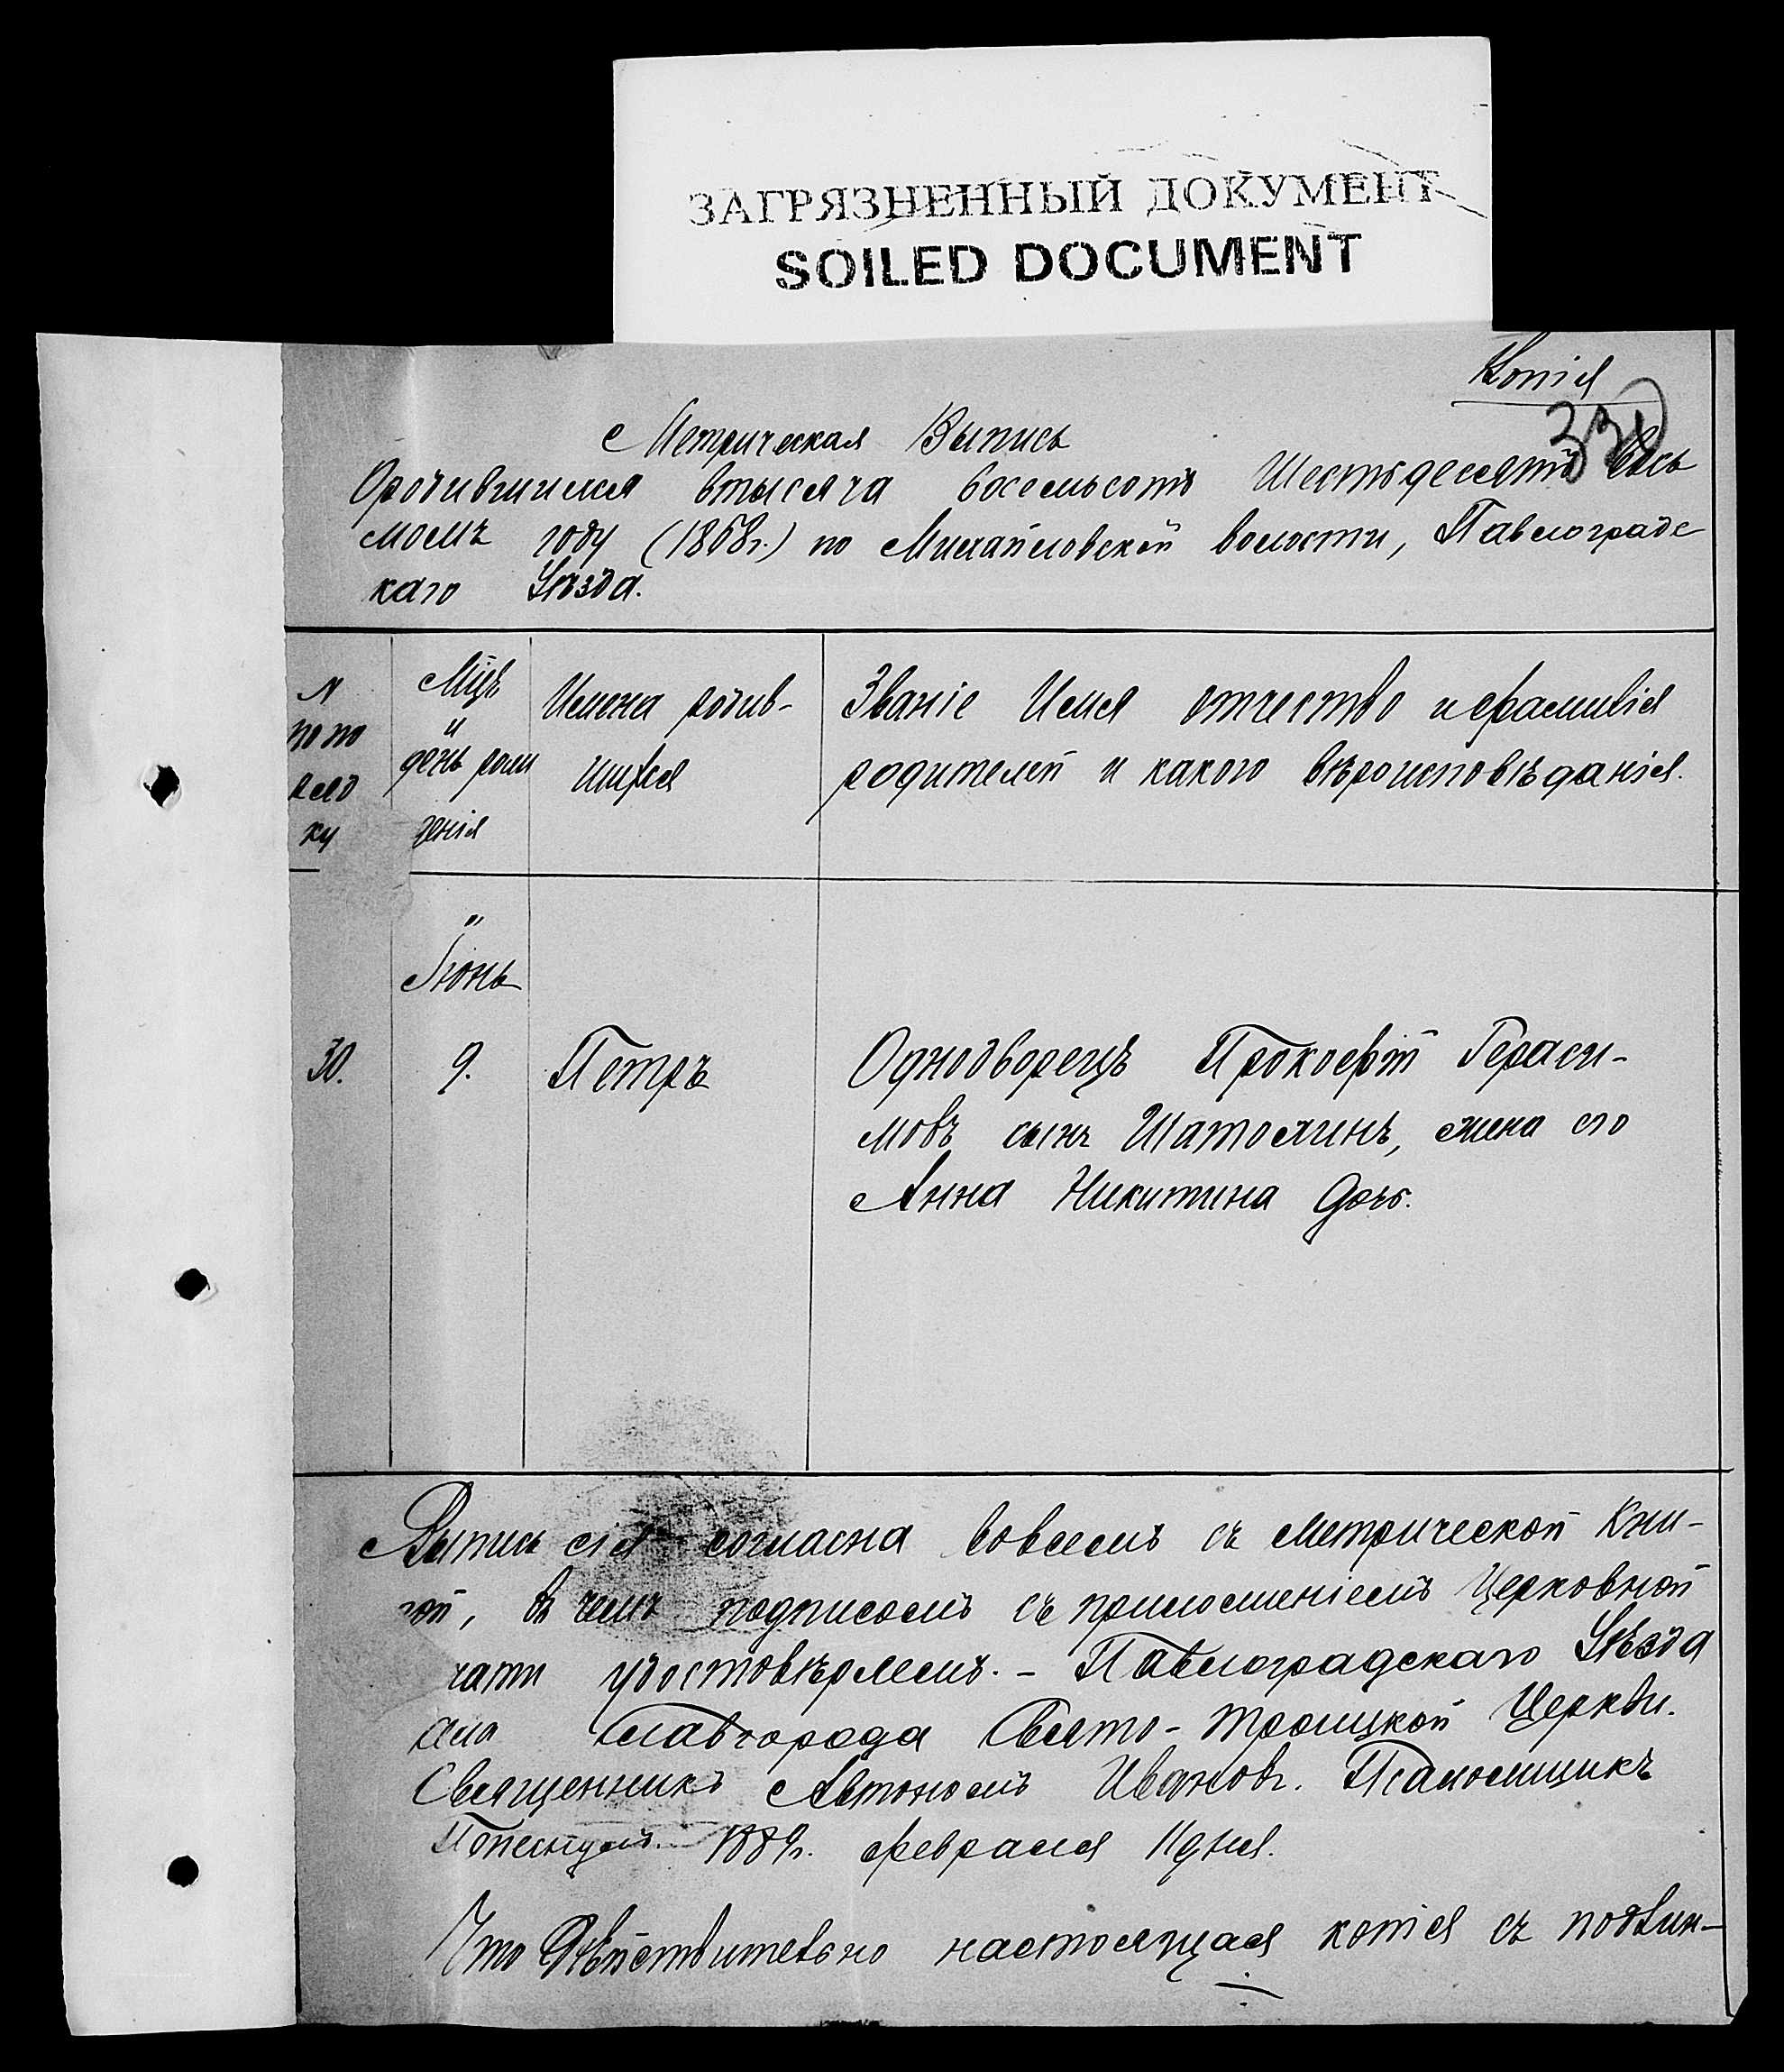 ЗАГРЯЗНЕННЫЙ ДОКУМЕНТ
SOILED DOCUMENT
Копія
Метрическая Выпись
Ородившимся втысяча восемьсотъ Шестьдесятъ вось
момъ году (1868г.) по Михайловской волости, Павлоградс
каго Уѣзда.
N
по по
ряд
ку
Мцъ
и
день рож
денія
Имена родив-
шихся
Званіе Имя отчество и фамилія
родителей и какого вѣроисповѣданія.
Іюнь
30.
9.
Петръ
Однодворецъ Прокофій Гераси-
мовъ сынъ Шатохинъ, жена его
Анна Никитина дочь.
Выпись сія согласна вовсемъ съ метрической Кни-
гой, въ чемъ подписомъ съ приложеніемъ Церковной
чати удостовѣряемъ. - Павлоградскаго Уѣзда
села Славгорода Свято-Троицкой Церкви.
Священникъ Автономъ Ивановъ. Псаломщикъ
1889г. февраля 11 дня.
Что Дѣйствительно настоящая копія съ подлин-